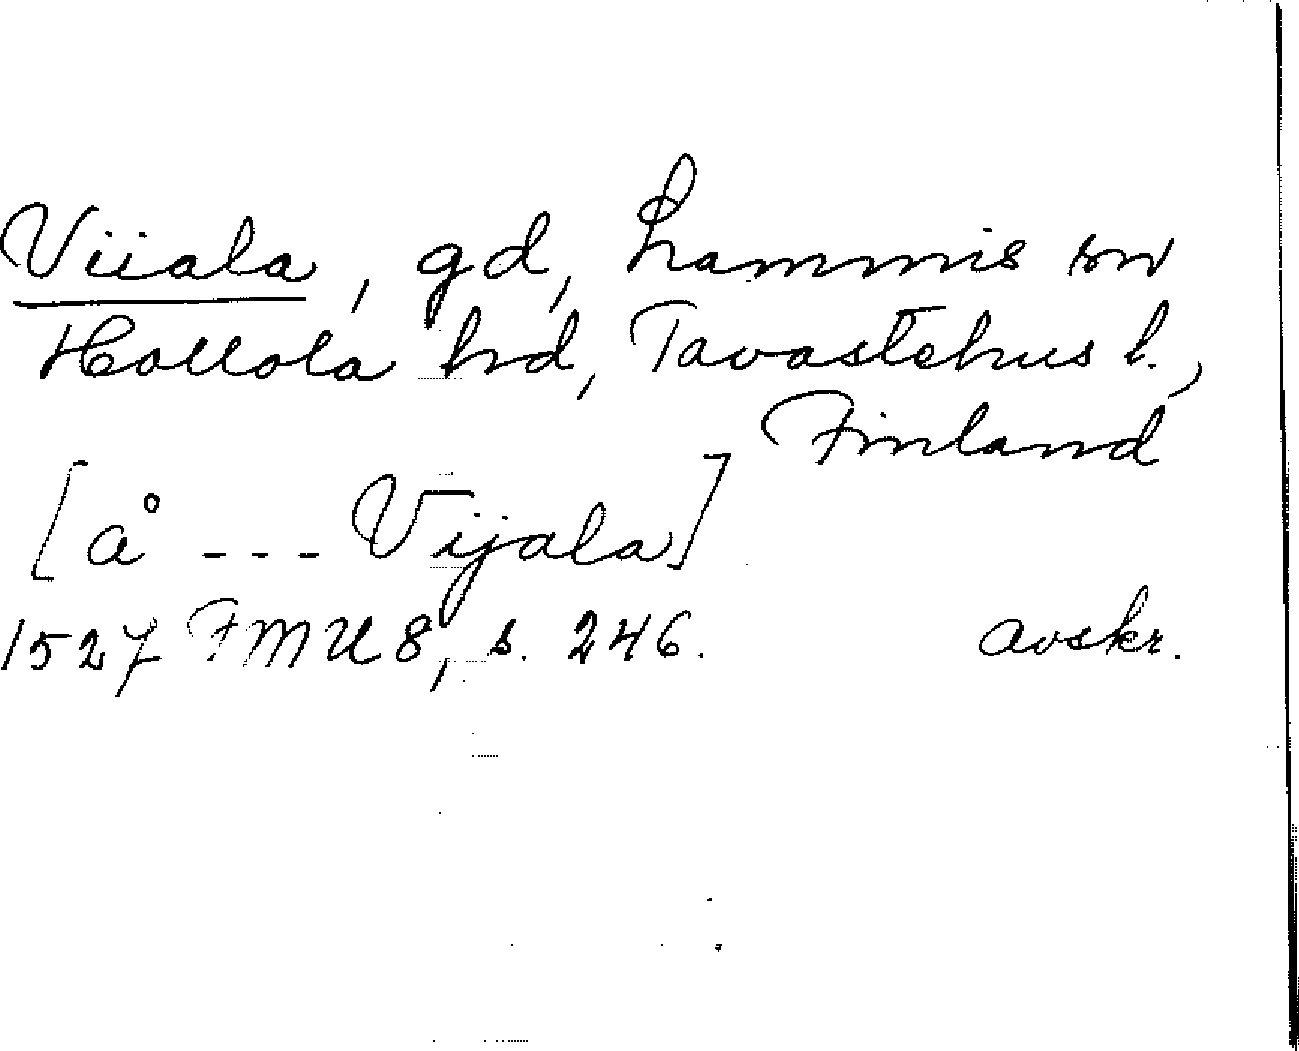 Viiala, gd, Lammis sn
Hollola hrd, Tavastehus l.,
Finland
[å --- Vijala]
1527 FMU 8, s. 246. avskr.